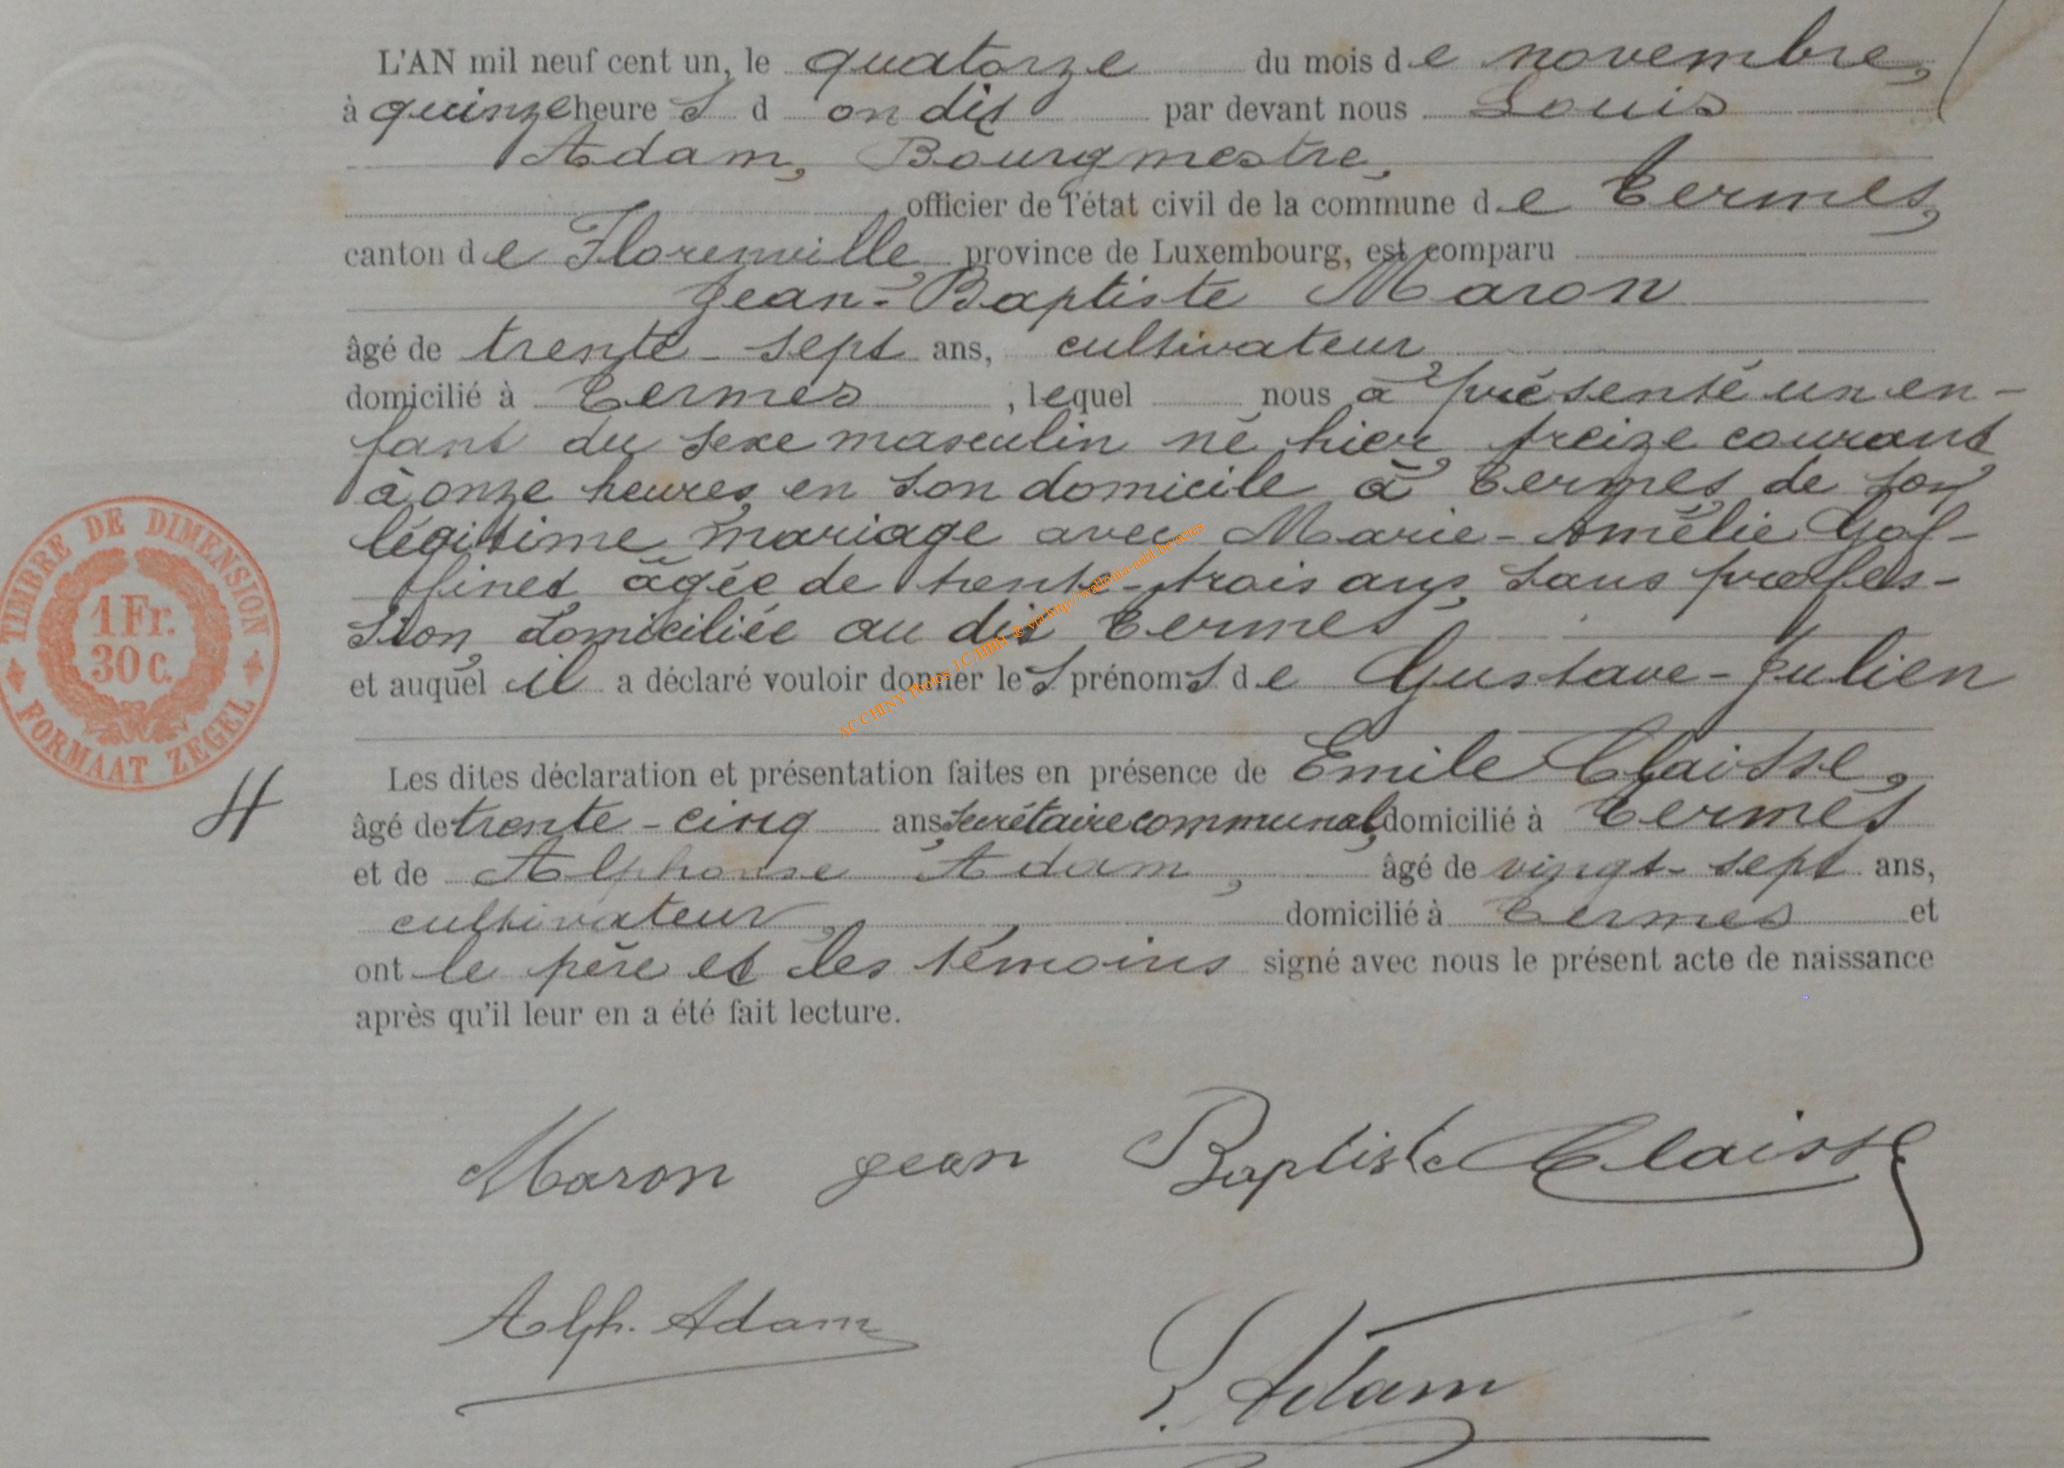 L'AN mil neuf cent un, le quatorze du mois de novembre,
à quinze heures d on dit par devant nous Louis
Adam, Bourgmestre,
officier de l'état civil de la commune de Termes,
canton de Florenville, province de Luxembourg, est comparu
Jean-Baptiste Maron
âgé de trente-sept ans, cultivateur,
domicilié à Termes, lequel nous a présenté un en-
fant du sexe masculin né hier, treize courant
à onze heures, en son domicile à Termes, de son
légitime mariage avec Marie-Amélie Gof-
finet, âgée de trente-trois ans, sans profes-
sion, domiciliée au dit Termes
et auquel il a déclaré vouloir donner les prénoms de Gustave-Julien
Les dites déclaration et présentation faites en présence de Emile Claisse,
âgé de trente-cinq ans, secrétaire communal, domicilié à Termes
et de Alphonse Adam, âgé de vingt-sept ans,
cultivateur, domicilié à Termes et
ont le père et les témoins signé avec nous le présent acte de naissance
après qu'il leur en a été fait lecture.
Maron jean Baptiste Claisse
Alph. Adam
L. Adam
TIMBRE DE DIMENSION
1 Fr.
30 c.
FORMAAT ZEGEL